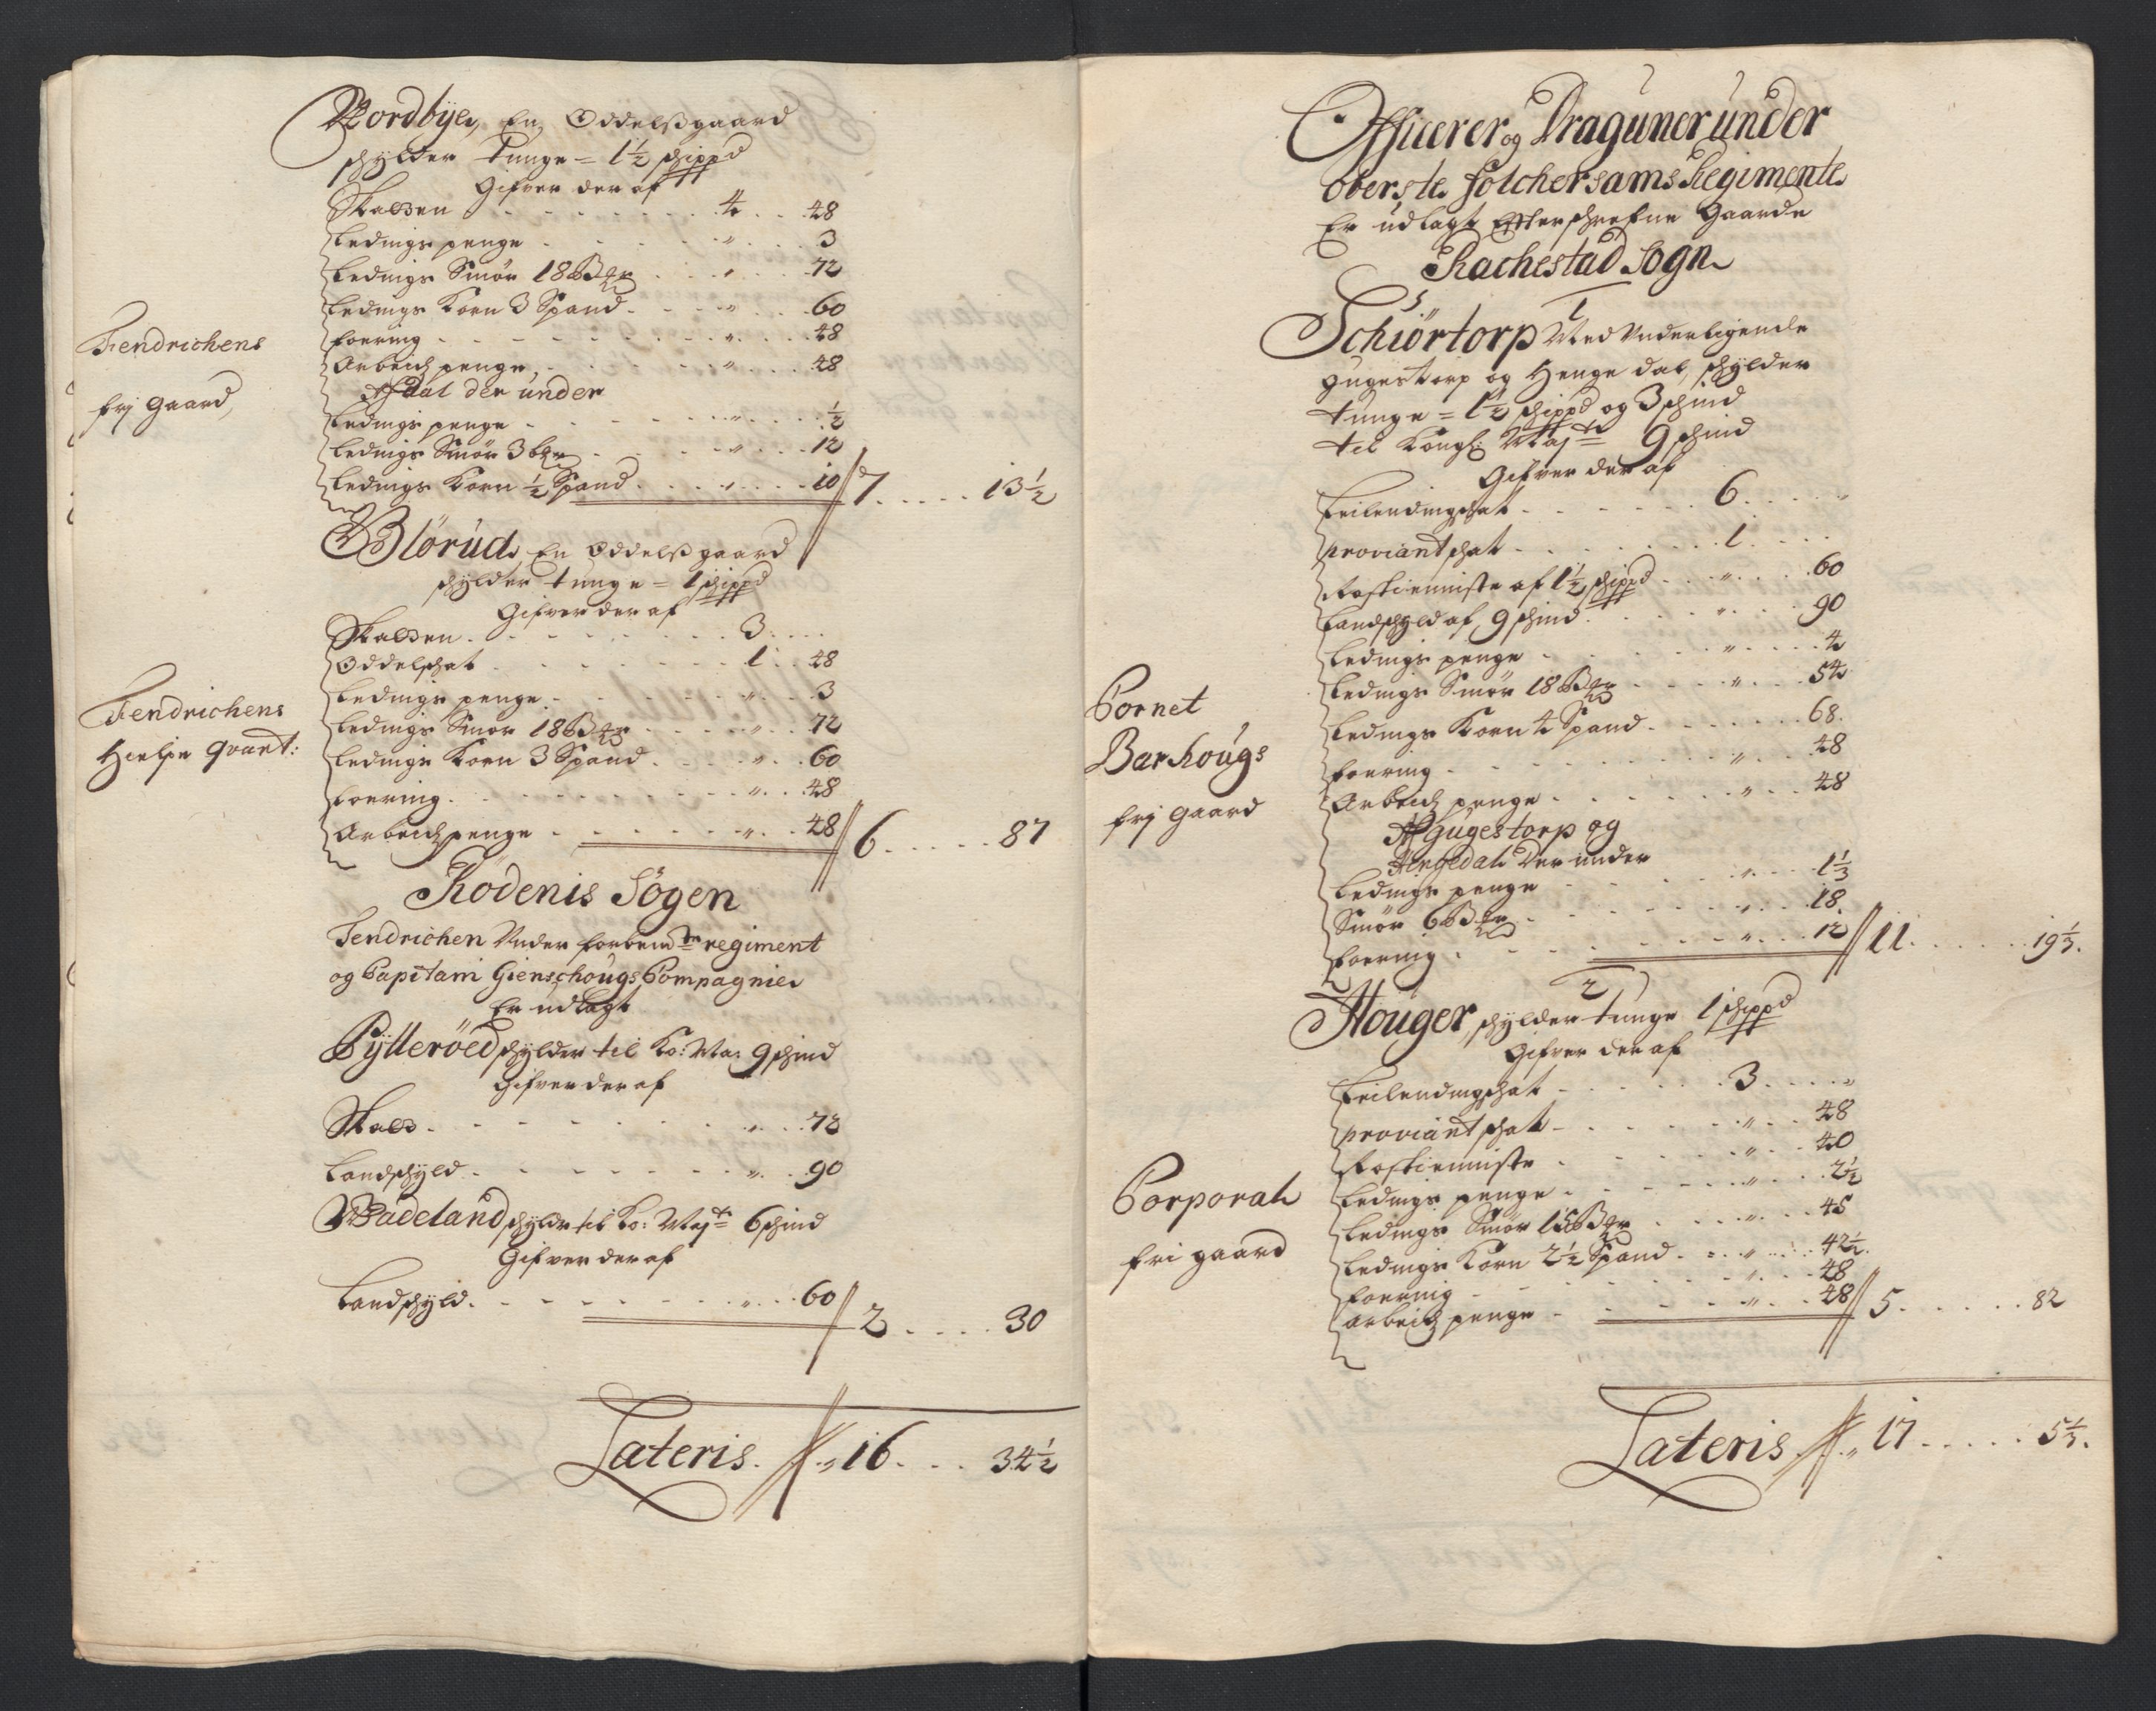 Nordbÿe, En Oddelsgaard
schÿlder Tunge = 1½ schippd
Gifver der af
Skatten . . . 4 . . 48
Ledings penge . . . " . . 3
Ledings Smör 18 Bger . . . " . . 72
Ledings Korn 3 Spand . . . " . . 60
Foering . . . " . . 48
Arbeidz penge, . . . " . . 48
Af Dal der under
Ledings penge . . . " . . ½
Ledings Smör 3 bger . . . " . . 12
Ledings Korn ½ Spand . . . " . . 10 // 7 . . . . . 13½
Fendrichens
frj gaard,
Blörud, En Oddelsgaard
schÿlder tunge = 1 schippd
Gifver der af
Skatten . . . 3 . . .
Oddelschat . . . 1 . . 48
Ledings penge . . . " . . 3
Ledings Smör 18 Bger . . . " . . 72
Ledings Korn 3 Spand . . . " . . 60
Foering . . . " . . 48
Arbeidz penge . . . " . . 48 // 6 . . . . . 87
Fendrichens
Hielpe qvart:
Rödenis Sögen
Fendrichen Under forbemte regiment
og Capitani Gienschougs Compagnie
Er udlagt
Pÿtteröed schÿlder til Ko: Ma: 9 schind
Gifver der af
Skatt . . . " . . 72
Landschÿld . . . " . . 90
Wadeland schÿldr til Ko: Majt 6 schind
Gifver der af
Landschÿld . . . " . . 60 // 2 . . . . 30
Lateris . // " 16 . . . 34½
Officerer og Draguner under
Oberste folchersams Regimente
Er udlagt Efterschrefne Gaarde
Rachestad Sogn
1
Schiörtorp Med Underligende
Gugestorp og Henge dal, schÿlder
tunge = 1½ schippd og 3 schind
til Kongl: Majts 9 schind
Gifver der af
Feilendingschat . . . 6 . . "
Proviantschat . . . 1 . . .
Rostienniste af 1½ schippd . . . " . . 60
Landschÿld af 9 schind . . . " . . 90
Ledings penge . . . " . . 4
Ledings Smör 18 Bger . . . " . . 54
Ledings Korn 4 Spand . . . . 68.
Foering . . . " . . 48
Arbeidz penge . . . " . . 48
Af Gugestorp og
Hengedal Der under
Ledings penge . . . " . . 1⅓
Smör 6 Bger . . . " . . 18.
Foering . . . " . . 12 // 11 . . . . . 19⅓.
Cornet
Barhougs
frj gaard
2
Houger, schÿlder tunge 1 schippd
Gifver der af
Feilendingschat . . . 3 . . . "
Proviantschat . . . " . . 48
Rostienniste . . . " . . 40
Ledings penge . . . " . . 2½
Ledings Smör 15 Bger . . . " . . 45
Ledings Korn 2½ Spand . . . " . . 42½.
Foering . . . " . . 48
Arbeidz penge . . . " . . 48 // 5 . . . . . 82
Corporals
fri gaard
Lateris . // " 17 . . . . . 5⅓.